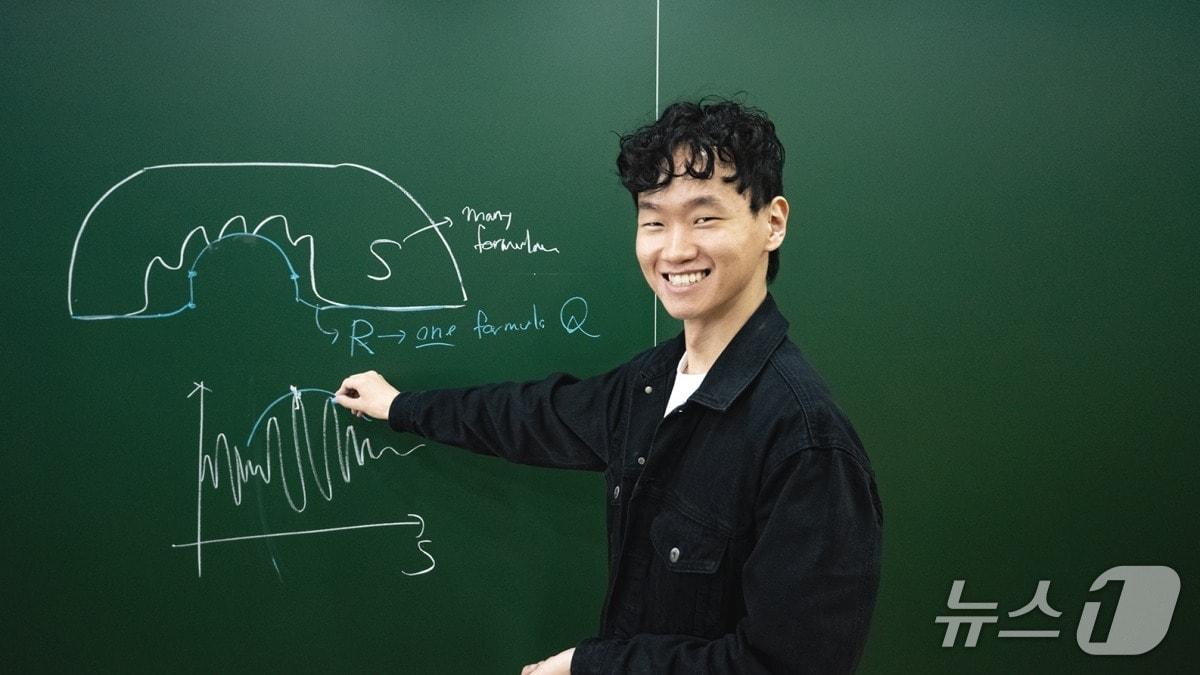 S → many
formulas
R → one formula Q
S
뉴스1